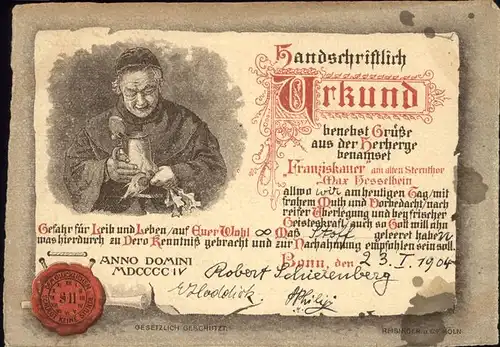 Handschriftlich
Urkund
benebst Grüße
aus der Herberge
benamset
Franziskaner am alten Sternthor
Max Hesselbein
allwo wir am heutigen Tag/mit
frohem Muth und Vorbedacht/nach
reifer Überlegung und bei frischer
Geisteskraft/auch so Gott will ohn
Gefahr für Leib und Leben/auf Euer Wohl ∞ Maß Stoff geleeret haben
was hierdurch zu Dero Kenntniß gebracht und zur Nachahmung empfohlen sein soll.
ANNO DOMINI
MDCCCC IV
Bonn, den 23. I. 1904
Robert Schierenberg
GESETZLICH GESCHÜTZT.